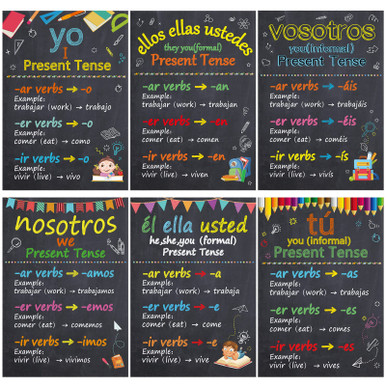 yo
I
Present Tense
-ar verbs → -o
Example:
trabajar (work) → trabajo
-er verbs → -o
Example:
comer (eat) → como
-ir verbs → -o
Example:
vivir (live) → vivo
ellos ellas ustedes
they you(formal)
Present Tense
-ar verbs → -an
Example:
trabajar (work) → trabajan
-er verbs → -en
Example:
comer (eat) → comen
-ir verbs → -en
Example:
vivir (live) → viven
vosotros
you(informal)
Present Tense
-ar verbs → -áis
Example:
trabajar (work) → trabajáis
-er verbs → -éis
Example:
comer (eat) → coméis
-ir verbs → -ís
Example:
vivir (live) → vivís
nosotros
we
Present Tense
-ar verbs → -amos
Example:
trabajar (work) → trabajamos
-er verbs → -emos
Example:
comer (eat) → comemos
-ir verbs → -imos
Example:
vivir (live) → vivimos
él ella usted
he,she,you (formal)
Present Tense
-ar verbs → -a
Example:
trabajar (work) → trabaja
-er verbs → -e
Example:
comer (eat) → come
-ir verbs → -e
Example:
vivir (live) → vive
tú
you (informal)
Present Tense
-ar verbs → -as
Example:
trabajar (work) → trabajas
-er verbs → -es
Example:
comer (eat) → comes
-ir verbs → -es
Example:
vivir (live) → vives